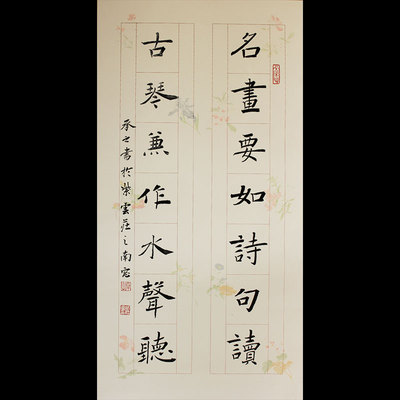 名畫要如詩句讀
古琴兼作水聲聽
承之書於榮雲莊之南窓